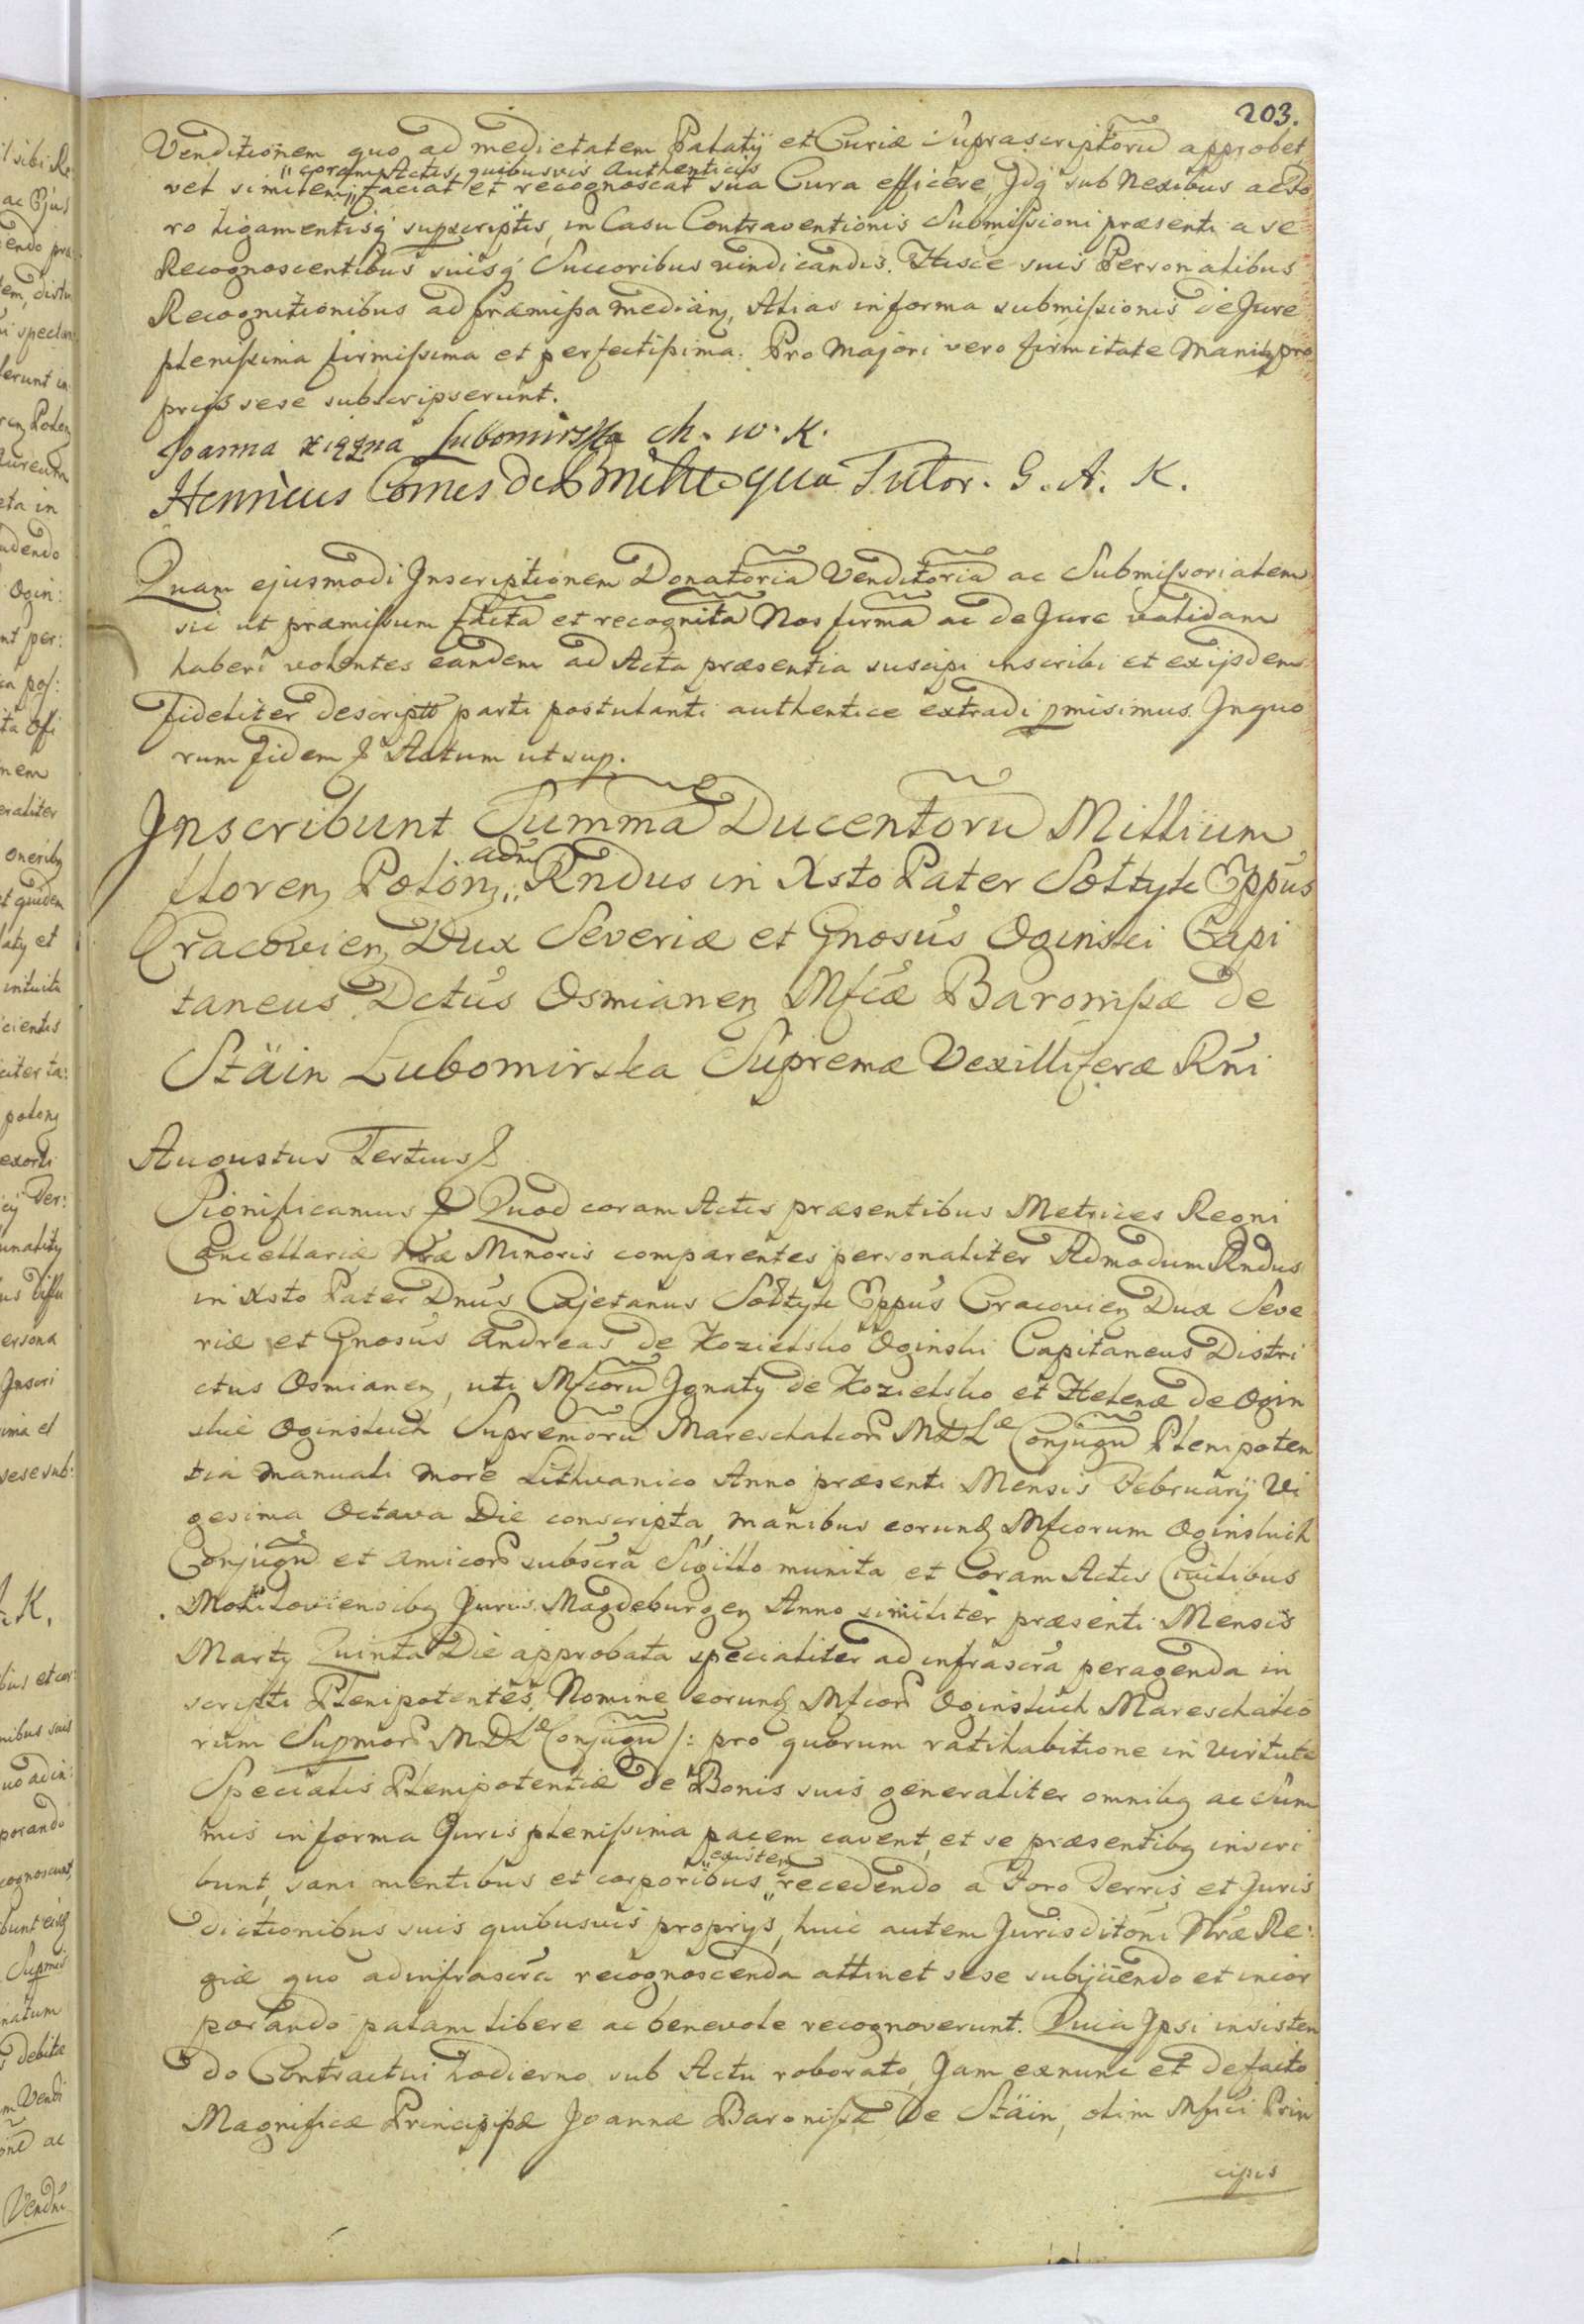 203.
Venditionem quo ad medietatem Palatÿ et Curiæ Suprascriptorũ approbet
" coram Actis quibusvis Authenticis
vel similem " faciat et recognoscat sua Cura efficere, Idq́ sub Nexibus ac Fo
ro ligamentisq́ supscriptis, in Casu Contraventionis Submissioni præsenti a se
Recognoscentibus suisq́ Succoribus vindicandis. Hisce suis Personalibus
Recognitionibus ad præmissa medianẓ, Alias in forma submissionis de Jure
plenissima firmissima et perfectissima. Pro Majori vero firmitate Manibꝫ pro
prÿs sese subscripserunt.
Joanna xiężna Lubomirska ch. w. K.
Henricus Comes de Brühl qua Tutor. G. A. K.
Quam ejusmodi Inscriptionem Donatoriã Venditoriã ac Submissorialem
sic ut præmissum factã et recognitã Nos firmã ac de Jure validam
haberi volentes eandem ad Acta præsentia suscipi inscribi et ex ijsdem
fideliter descriptã parti postulanti authentice extradi pmisimus. In quo
rum fidem & Actum ut sup.
Inscribunt Summã Ducentorũ Millium
floren Polon " adm Rndus in Xsto Pater Sołtyk Eppus
Cracovien Dux Severiæ et Gnosus Oginski Capi
taneus Dctus Osmianen Mfcæ Baronissæ de
Stäin Lubomirska Supremæ Vexilliferæ Rñi
Augustus Tertius &
Significamus & Quod coram Actis præsentibus Metrices Regni
Cancellariæ Nræ Minoris comparentes personaliter Admodum Rndus
in Xsto Pater Dnus Cajetanus Sołtyk Eppus Cracovien Dux Seve
riæ et Gnosus Andreas de Kozielsko Oginski Capitaneus Distri
ctus Osmianen, uti Mfcorũ Ignatÿ de Kozielsko et Helenæ de Ogin
skie Oginskich Supremorũ Mareschalcor MDLæ Conjugũ Plenipoten
tia manuali more Lithvanico Anno præsenti Mensis Februarÿ Vi
gesima Octava Die conscripta, manibus eorund Mfcorum Oginskich
Conjugũ et amicor subscra Sigillo munita et Coram Actis Civilibus
Mohiloviensibꝫ Juris Magdeburgen Anno similiter præsenti Mensis
Martÿ Quinta Die approbata specialiter ad infrascra peragenda in
scripti Plenipotentes, Nomine eorund Mfcor Oginskich Mareschalco
rum Supmor MDLæ Conjugũ /: pro quorum ratihabitione in virtute
Specialis Plenipotentiæ de Bonis suis generaliter omnibꝫ ac Sum
mis in forma Juris plenissima pacem cavent, et se præsentibꝫ inscri
bunt, sani mentibus et corporibus " existen recedendo a Foro Terris, et Juris
dictionibus suis quibusuis proprÿs, huic autem Jurisditoni Nræ Re:
giæ quo ad infrascra recognoscenda attinet sese subÿciendo et incor
porando palam libere ac benevole recognoverunt. Quia Ipsi insisten
do Contractui hodierno sub Actu roborato, Jam exnunc et defacto
Magnificæ Principissæ Joannæ Baronissæ de Stäin, olim Mfici Prin
cipis